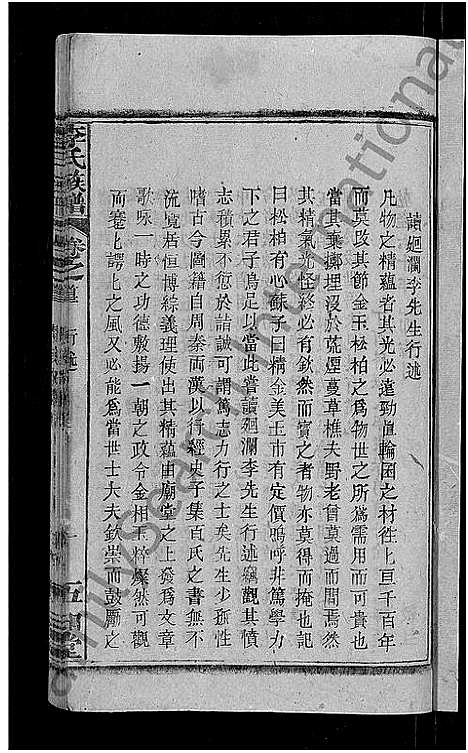 讀廻瀾李先生行述
凡物之精蘊者其光必遠勁直輪囷之材徃上亘千百年
而莫改其節金玉松柏之爲物世之所爲需用而可貴也
當其棄擲埋沒於荒煙蔓草樵夫野老曾莫過而問焉然
其精氣光怪終必有欽然而寳之者物亦莫得而掩也記
曰松柏有心蘇子曰精金美玉市有定價嗚呼非篤學力
下之君子烏足以當此嘗讀廻瀾李先生行述竊觀其憤
志積累不愆於詰誡可謂篤志力行之士矣先生少孤性
嗜古今圖籍自周秦兩漢以行經史子集百氏之書無不
流覽居恒博綜義理使出其精蘊由廟堂之上發爲文章
歌咏一時之功德敷揚一朝之政令金相玉粹燦然可觀
而蹇上諤上之風又必能爲當世士大夫欽崇而鼓勵之
李氏族譜
卷之首
行述
一